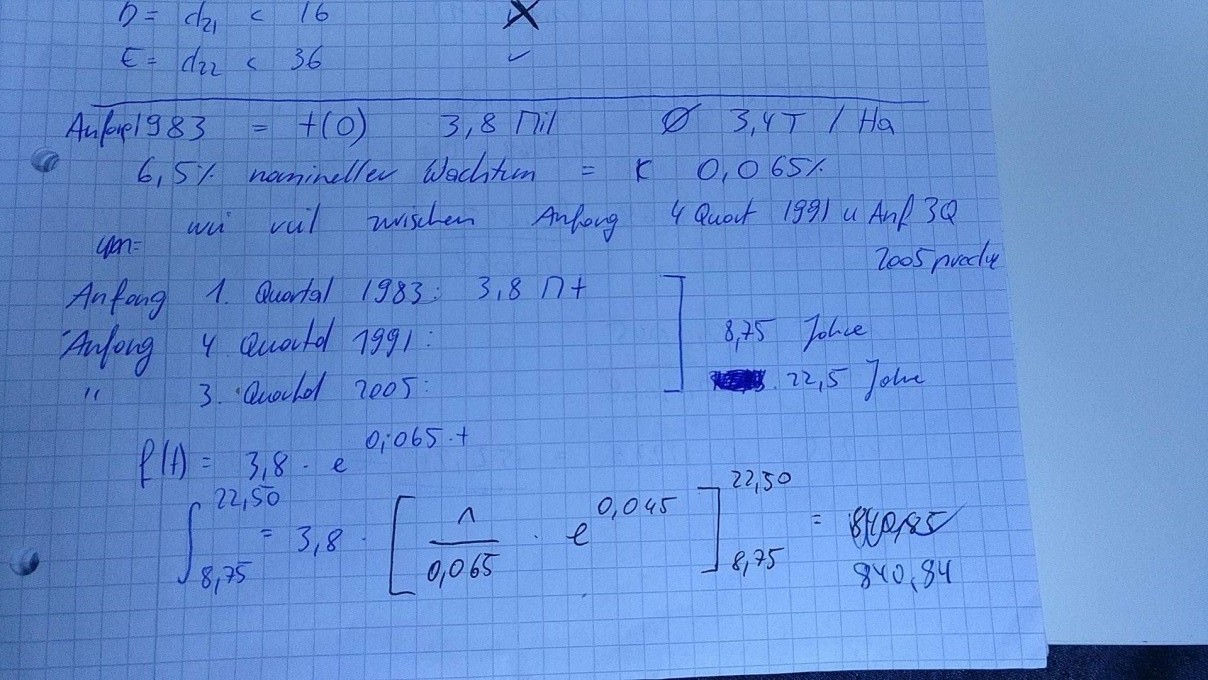 D = d21 < 16 X
E = d22 < 36 ✓
Anfang 1983 = t(0) 3,8 Mil Ø 3,4T / Ha
6,5% nomineller Wachtum = K 0,065%
wie viel zwischen Anfang 4 Quart 1991 u Anf 3Q
2005
Anfang 1. Quartal 1983: 3,8 Mt
Anfang 4. Quartal 1991: 8,75 Jahre
" 3. Quartal 2005: 22,5 Jahre
f(t) = 3,8 · e^0,065·t
∫ 22,50 8,75 = 3,8 · [ 1/0,065 · e^0,045 ] 22,50 8,75 = 840,85
840,84